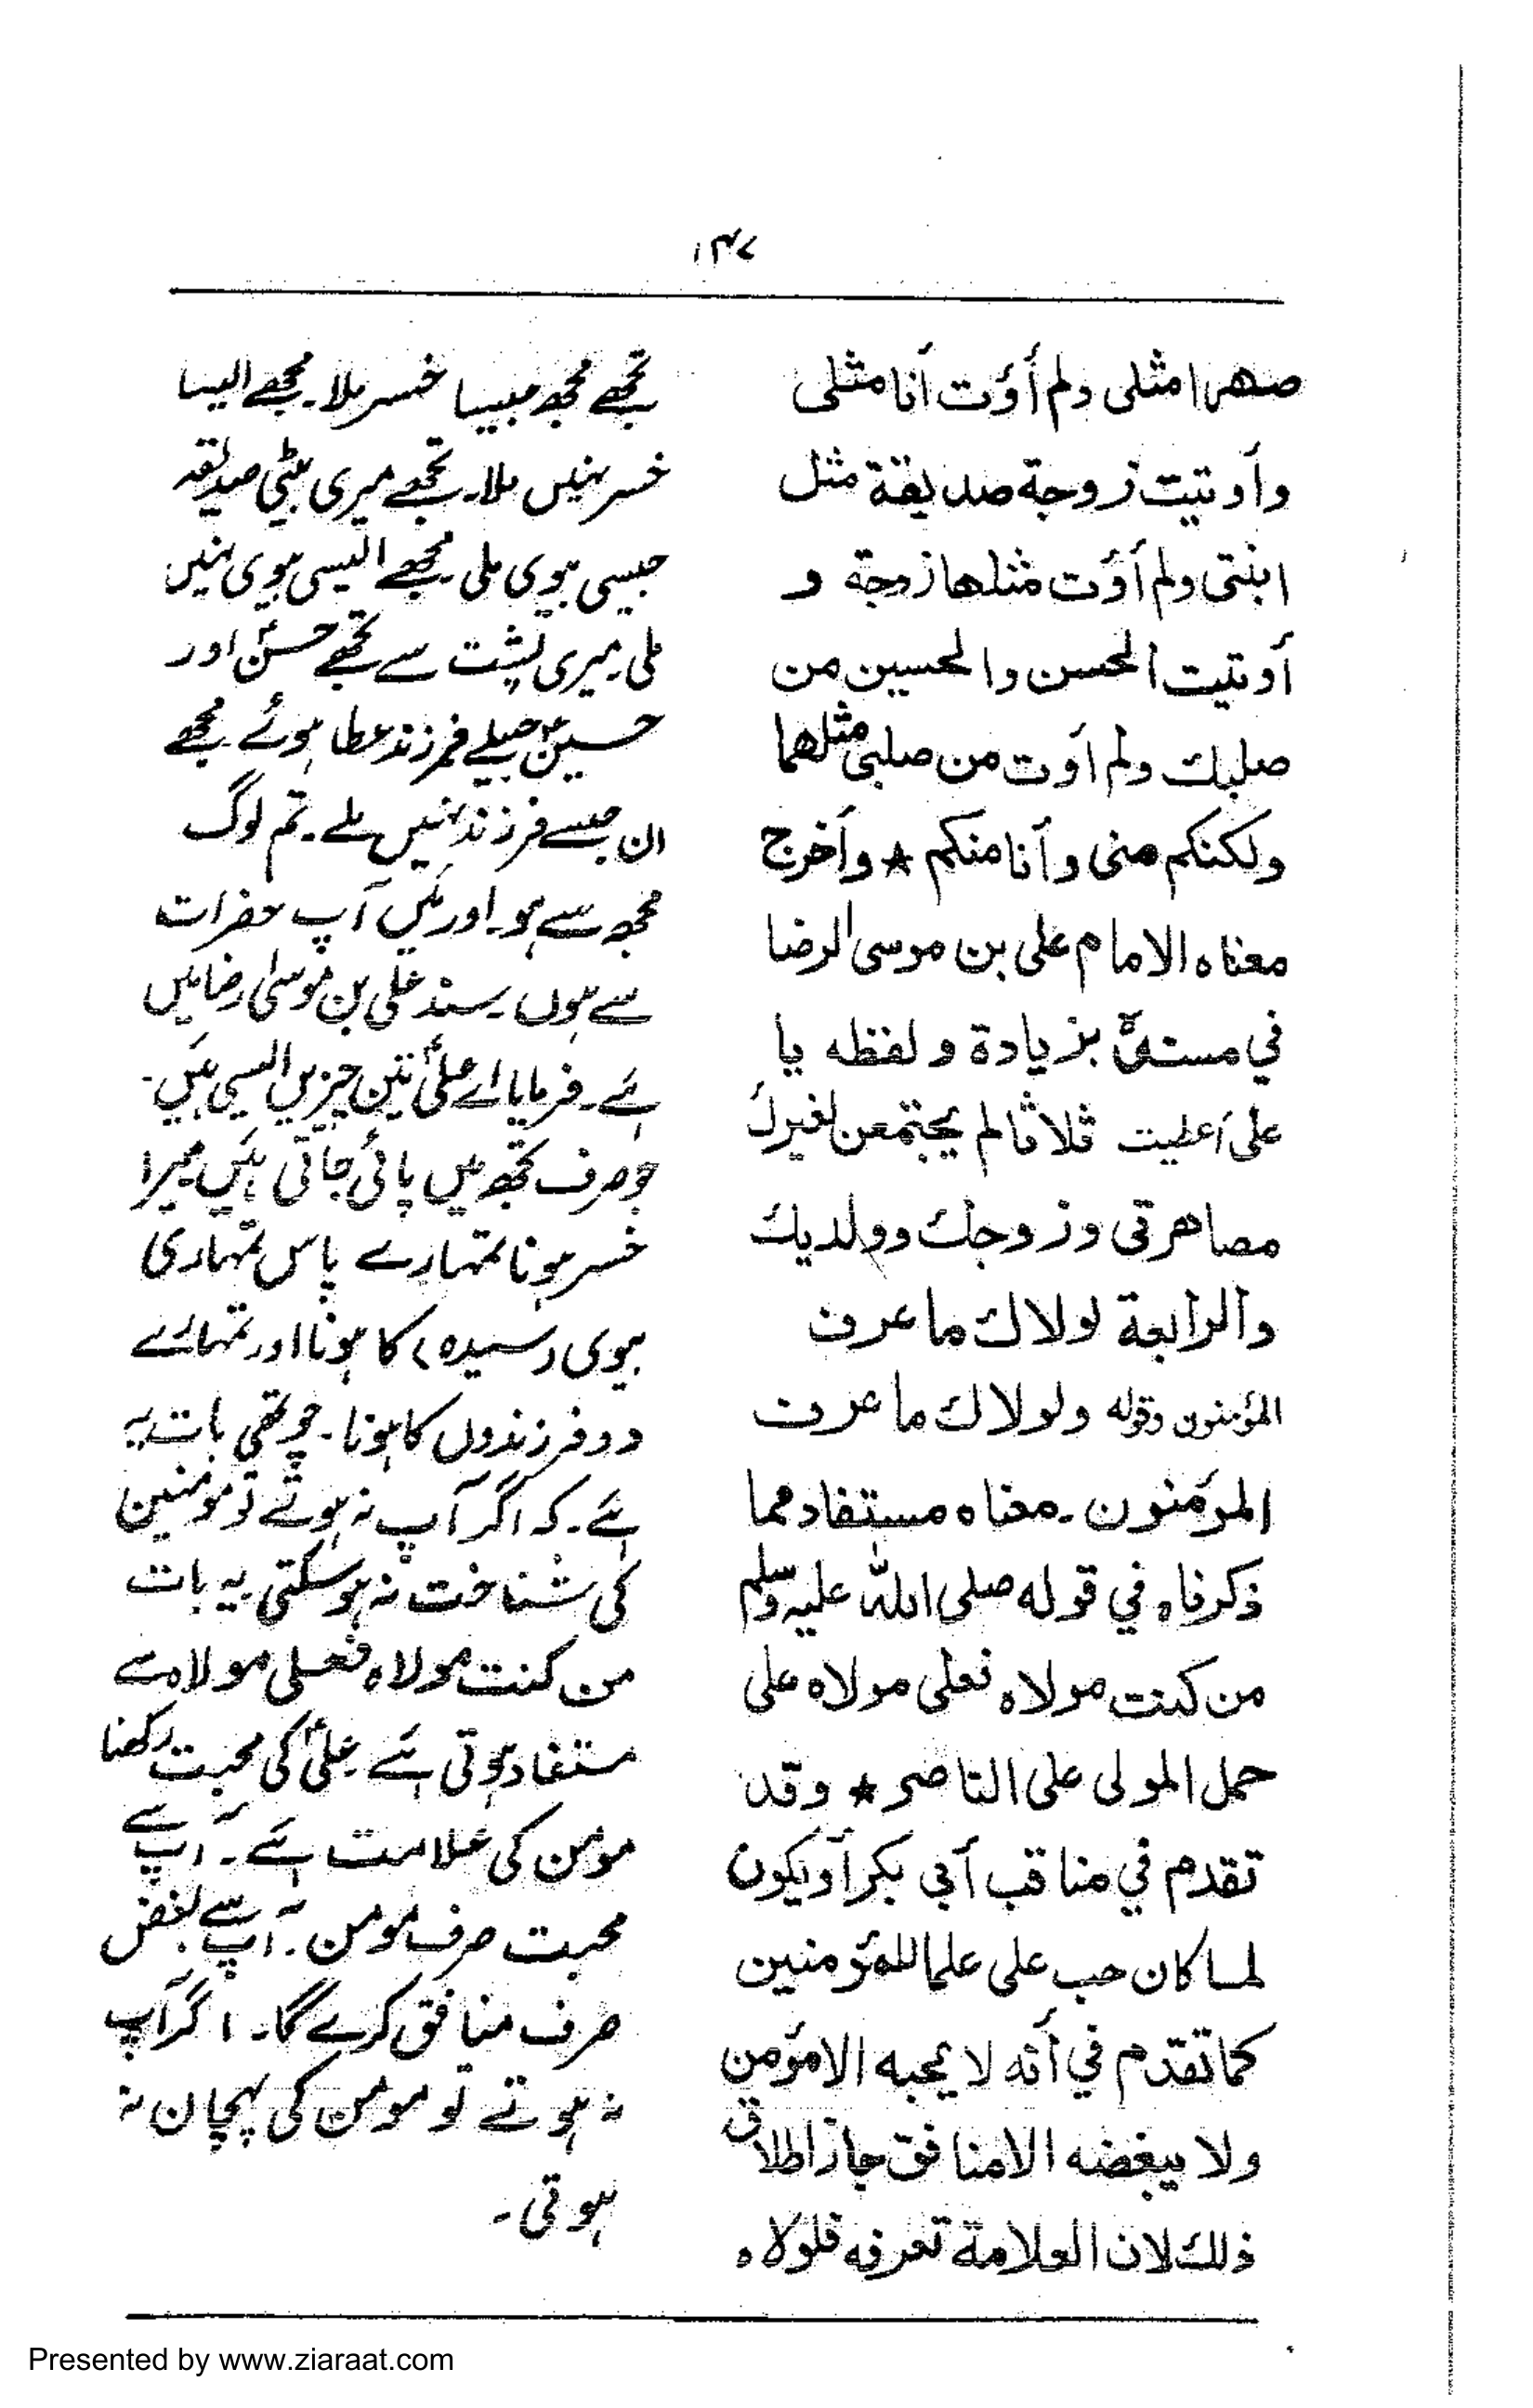 ۱۴۷
صهرا مثلى ولم أؤت أنا مثلى
وأوتيت زوجة صديقة مثل
ابنتى ولم أؤت مثلها زوجة و
أوتيت الحسن والحسين من
صلبك ولم أوت من صلبى مثلهما
ولكنكم منى وأنا منكم ★ وأخرج
معناه الامام على بن موسى الرضا
في مسنده بزيادة ولفظه يا
على أعطيت ثلاثا لم يجتمعن لغيرك
مصاهرتى وزوجك وولديك
والرابعة لولاك ما عرف
المؤمنون وقوله ولولاك ما عرف
المؤمنون ـ معناه مستفاد مما
ذكرناه في قوله صلى الله عليه وسلم
من كنت مولاه فعلى مولاه على
حمل المولى على الناصر ★ وقد
تقدم في مناقب أبي بكر أو يكون
لما كان حب على علما للمؤمنين
كما تقدم في أنه لا يحبه الا مؤمن
ولا يبغضه الا منافق جاز اطلاق
ذلك لان العلامة تعرفه فلولاه
تجھے مجھ جیسا خسر ملا۔ مجھے ایسا
خسر نہیں ملا۔ تجھے میری بیٹی صدیقہ
جیسی بیوی ملی مجھے ایسی بیوی نہیں
ملی۔ میری پشت سے تجھے حسنؑ اور
حسینؑ جیسے فرزند عطا ہوئے۔ مجھے
ان جیسے فرزند نہیں ملے۔ تم لوگ
مجھ سے ہو۔ اور میں آپ حضرات
سے ہوں۔ سند علی بن موسیٰ رضا میں
ہے۔ فرمایا اے علیؑ تین چیزیں ایسی ہیں۔
جو صرف تجھ میں پائی جاتی ہیں میرا
خسر ہونا تمہارے پاس تمہاری
بیوی (سیدہ) کا ہونا اور تمہارے
دو فرزندوں کا ہونا۔ چوتھی بات یہ
ہے۔ کہ اگر آپ نہ ہوتے تو مومنین
کی شناخت نہ ہو سکتی یہ بات
من کنت مولاہ فعلی مولاہ سے
مستفاد ہوتی ہے۔ علیؑ کی محبت رکھنا
مومن کی علامت ہے۔ آپ سے
محبت صرف مومن۔ آپ سے بغض
صرف منافق کرے گا۔ اگر آپ
نہ ہوتے تو مومن کی پہچان نہ
ہوتی۔
Presented by www.ziaraat.com